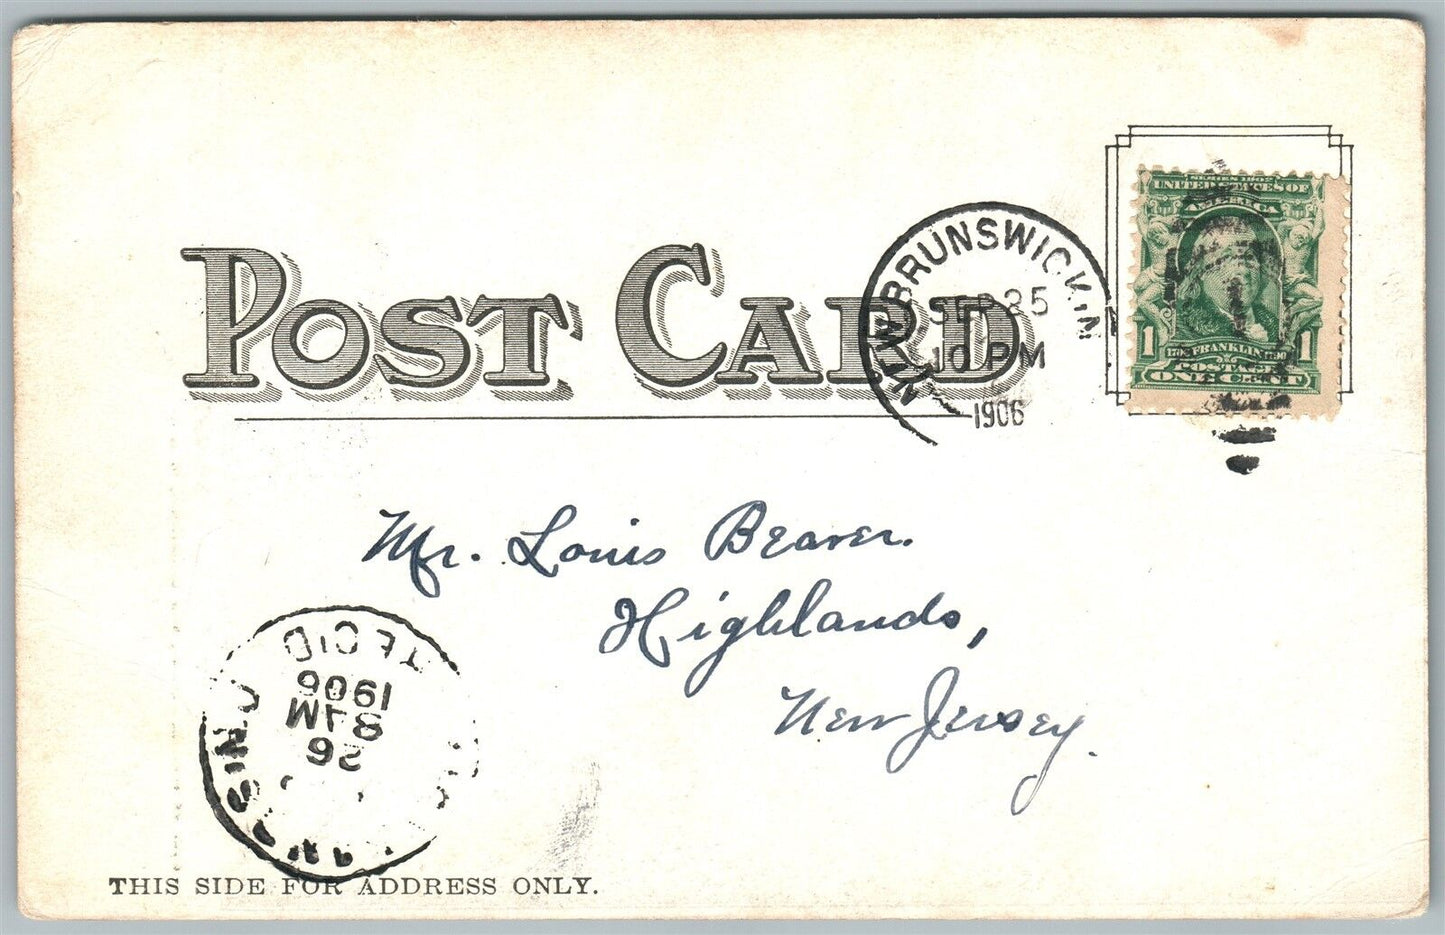 POST CARD
NEW BRUNSWICK, N
SEP 25
10 PM
1906
SERIES 1902
UNITED STATES OF
AMERICA
1 1
FRANKLIN
POSTAGE
ONE CENT
Mr. Louis Beaver.
Highlands,
New Jersey.
REC'D
1906
8 AM
26
THIS SIDE FOR ADDRESS ONLY.